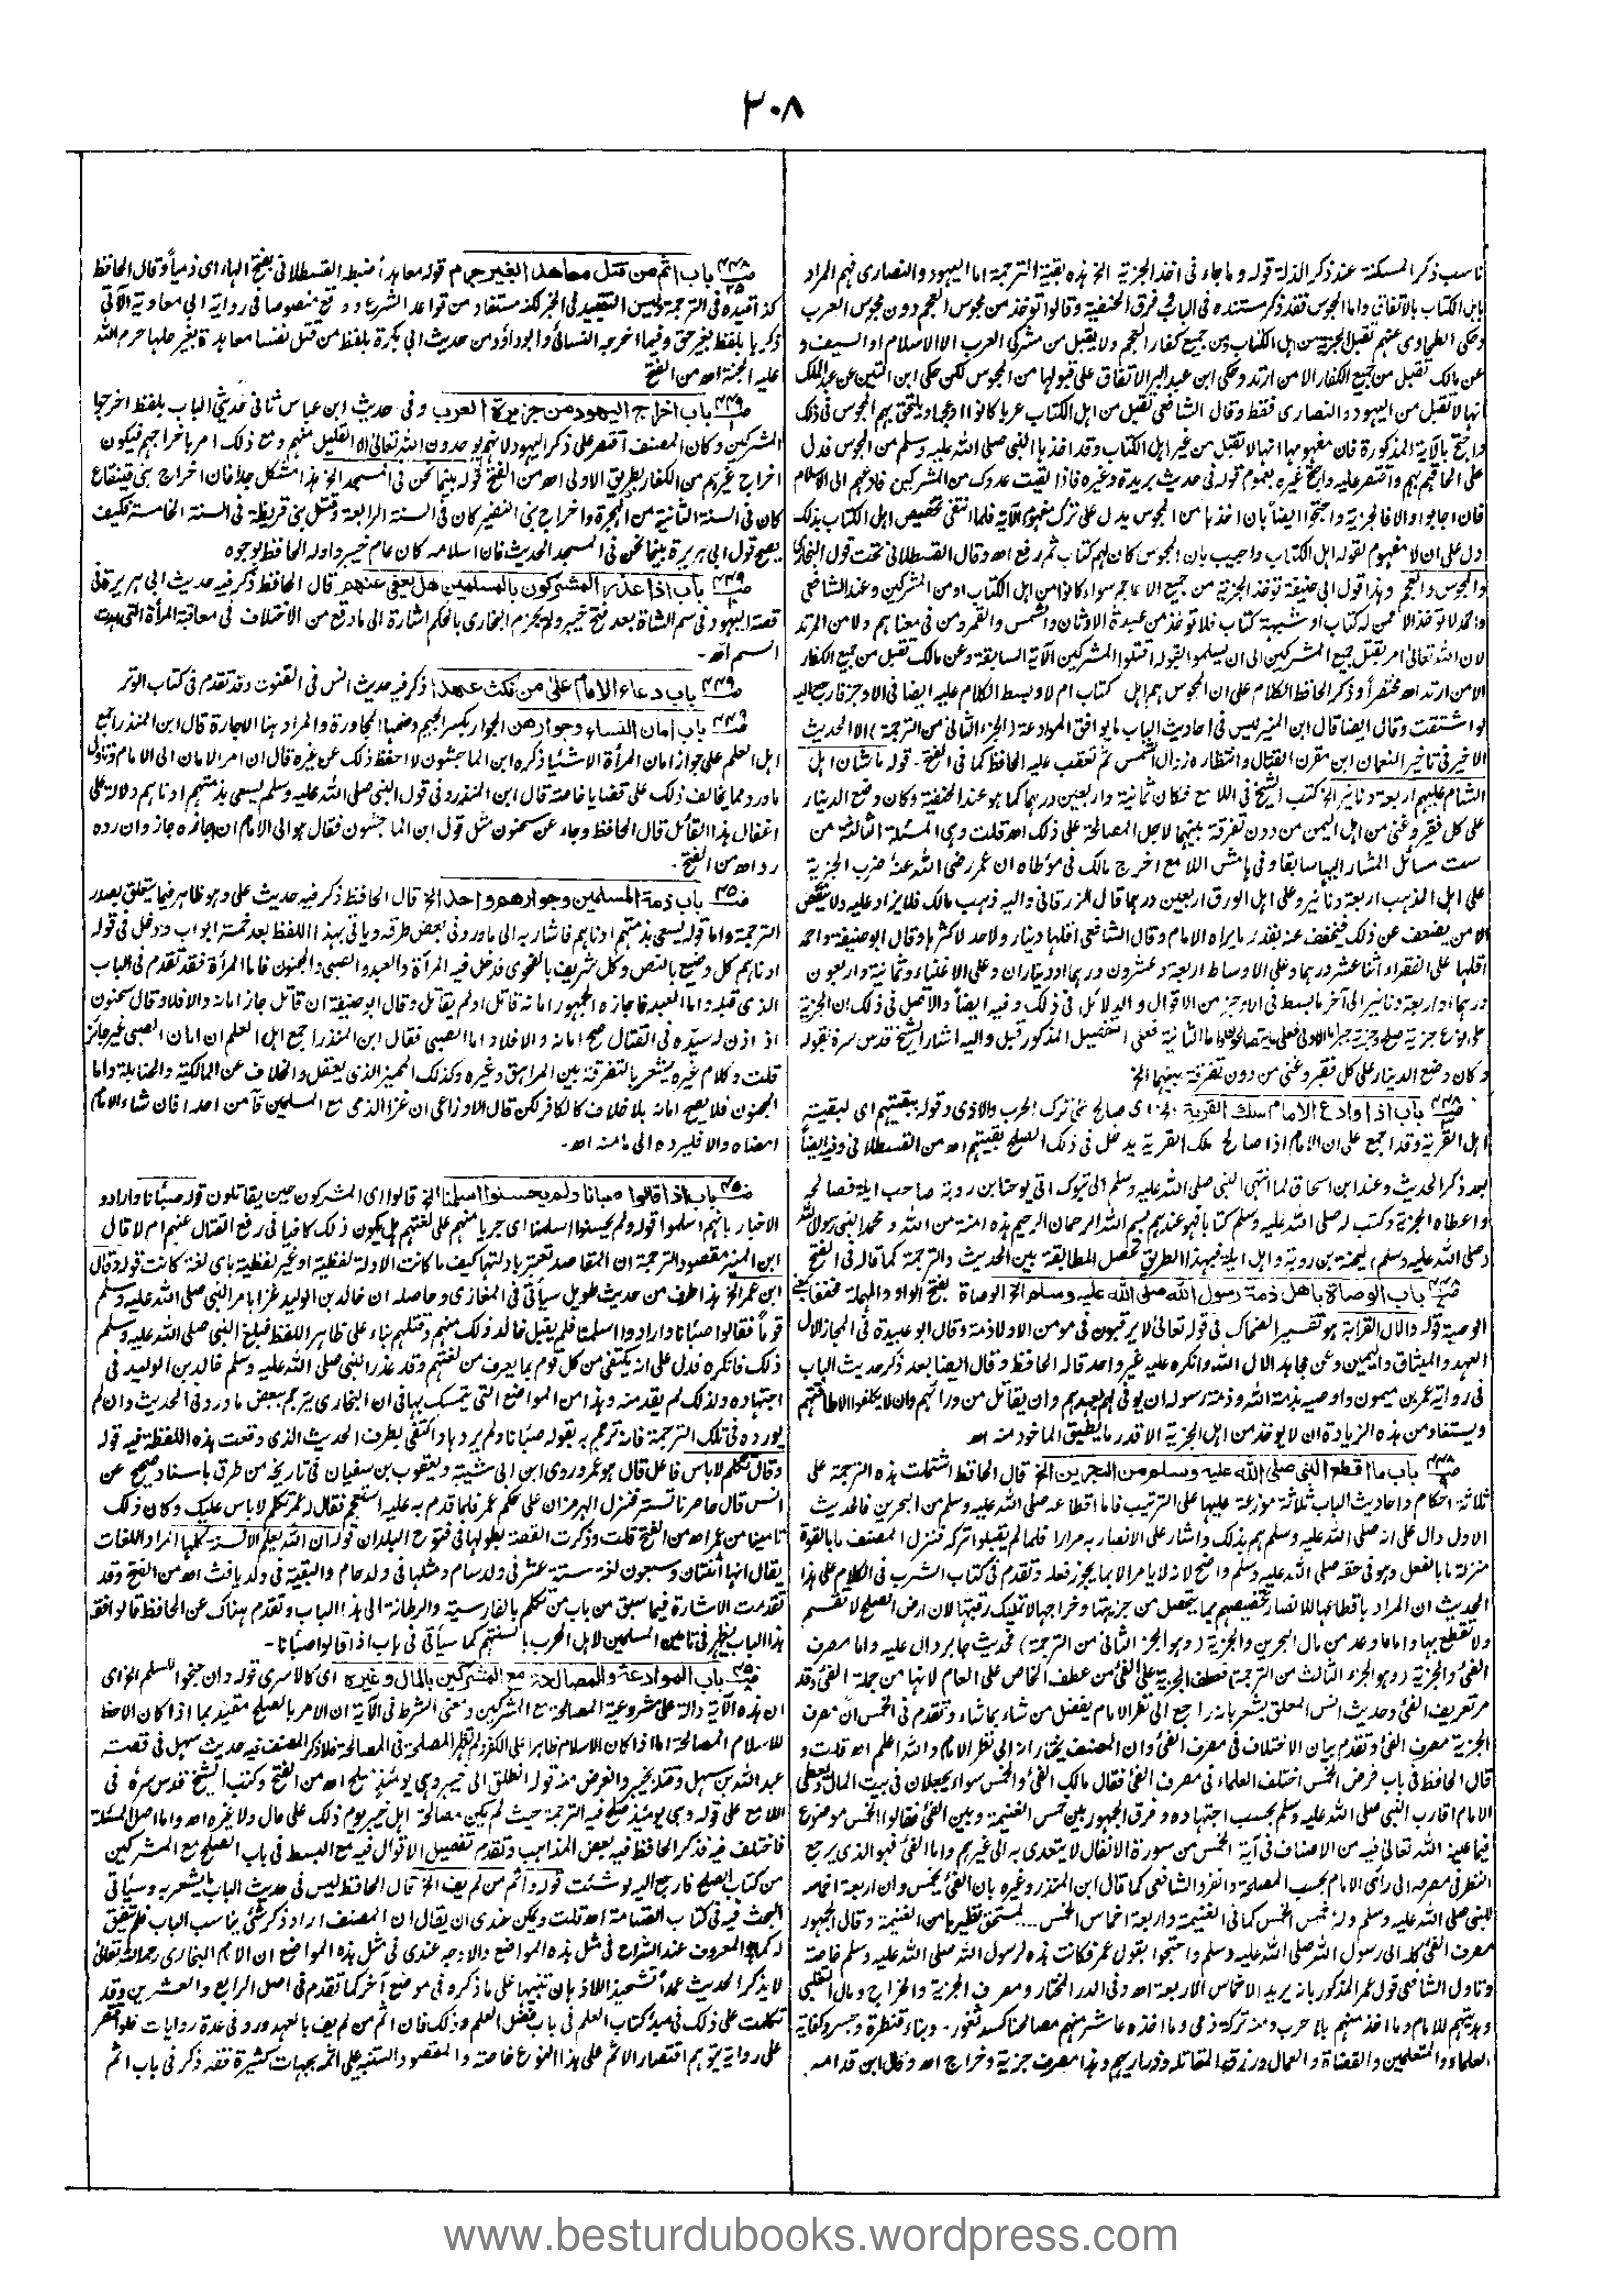 ٣٠٨
ناسب ذكر المسكنة عند ذكر الذلة قوله وما جاء فى اخذ الجزية الخ هذه بقية الترجمة اما اليهود والنصارى فهم المراد
باهل الكتاب بالاتفاق واما المجوس فقد ذكر مستنده فى الباب وفرق الحنفية وقالوا تؤخذ من مجوس العجم دون مجوس العرب
وحكى الطحاوى عنهم تقبل الجزية من اهل الكتاب ومن جميع كفار العجم ولا يقبل من مشركى العرب الا الاسلام او السيف و
عن مالك تقبل من جميع الكفار الا من ارتد وحكى ابن عبد البر الاتفاق على قبولها من المجوس لكن حكى ابن التين عن عبد الملك
انها لا تقبل من اليهود والنصارى فقط وقال الشافعى تقبل من اهل الكتاب عربا كانوا او عجما ويلتحق بهم المجوس فى ذلك
واحتج بالآية المذكورة فان مفهومها انها لا تقبل من غير اهل الكتاب وقد اخذها النبى صلى الله عليه وسلم من المجوس فدل
على الحاقهم بهم واقتصر عليه واحتج غيره بعموم قوله فى حديث بريدة وغيره فاذا لقيت عدوك من المشركين فادعهم الى الاسلام
فان اجابوا والا فالجزية واحتجوا ايضاً بان اخذها من المجوس يدل على ترك مفهوم الآية فلما انتفى تخصيص اهل الكتاب بذلك
دل على ان لا مفهوم لقوله اهل الكتاب واجيب بان المجوس كان لهم كتاب ثم رفع اھ وقال القسطلانى تحت قول البخارى
والمجوس والعجم وهذا قول ابى حنيفة تؤخذ الجزية من جميع الاعاجم سواء كانوا من اهل الكتاب او من المشركين وعند الشافعى
واحمد لا تؤخذ الا ممن له كتاب او شبهة كتاب فلا تؤخذ من عبدة الاوثان والشمس والقمر ومن فى معناهم ولا من المرتد
لان الله تعالى امر بقتل جميع المشركين الى ان يسلموا بقوله اقتلوا المشركين الآية السابقة وعن مالك تقبل من جميع الكفار
الا من ارتد اھ مختصراً وذكر الحافظ الكلام على ان المجوس هم اهل كتاب ام لا وبسط الكلام عليه ايضا فى الاوجز فارجع اليه
لو اشتقت وقال ايضا قال ابن المنير ليس فى احاديث الباب ما يوافق الموادعة (الجزء الثانى من الترجمة) الا الحديث
الاخير فى تاخير النعمان ابن مقرن القتال وانتظاره زوال الشمس ثم تعقب عليه الحافظ كما فى الفتح۔ قوله ما شان اهل
الشام عليهم اربعة دنانير الخ كتب الشيخ فى اللامع فكان ثمانية واربعين درهما كما هو عند الحنفية وكان وضع الدينار
على كل فقير وغنى من اهل اليمن من دون تفرقة بينهما لاجل المصالحة على ذلك اھ قلت وهى المسئلة الثالثة من
ست مسائل المشار اليها سابقا وفى هامش اللامع اخرج مالك فى مؤطاه ان عمر رضى الله عنه ضرب الجزية
على اهل الذهب اربعة دنانير وعلى اهل الورق اربعين درهما قال الزرقانى واليه ذهب مالك فلا يزاد عليه ولا ينقص
الا من يضعف عن ذلك فيخفف عنه بقدر ما يراه الامام وقال الشافعى اقلها دينار ولا حد لاكثرها وقال ابو حنيفة واحمد
اقلها على الفقراء اثنا عشر درهما وعلى الاوساط اربعة وعشرون درهما او ديناران وعلى الاغنياء وثمانية واربعون
درهما او اربعة دنانير الى آخر ما بسط فى الاوجز من الاقوال والدلائل فى ذلك وفيه ايضاً والاصل فى ذلك ان الجزية
المذكور قبل واليه اشار الشيخ قدس سره بقوله
وكان وضع الدينار على كل فقير وغنى من دون تفرقة بينهما الخ
باب اذا وادع الامام ملك القرية الخ اى صالح على ترك الحرب والاذى وقوله بقيتهم اى لبقية
اهل القرية وقد اجمع على ان الامام اذا صالح ملك القرية يدخل فى ذلك الصلح بقيتهم اھ من القسطلانى وفيه ايضاً
بعد ذكر الحديث وعند ابن اسحاق لما انتهى النبى صلى الله عليه وسلم الى تبوك اتى يوحنا بن روبة صاحب ايلة فصالحه
واعطاه الجزية وكتب له صلى الله عليه وسلم كتابا فهو عندهم بسم الله الرحمان الرحيم هذه امنة من الله ومحمد النبى رسول الله
(صلى الله عليه وسلم) ليحنة بن روبة واهل ايلة فبهذا الطريق تحصل المطابقة بين الحديث والترجمة كما قاله فى الفتح
باب الوصاة باهل ذمة رسول الله صلى الله عليه وسلم الخ الوصاة بفتح الواو والمهملة مخففا بمعنى
الوصية قوله والال القرابة هو تفسير الضحاك فى قوله تعالى لا يرقبون فى مومن الا ولا ذمة وقال ابو عبيدة فى المجاز الال
العهد والميثاق واليمين وعن مجاهد الال الله وانكره عليه غير واحد قاله الحافظ وقال ايضا بعد ذكر حديث الباب
فى رواية عمرو بن ميمون واوصيه بذمة الله وذمة رسوله ان يوفى لهم بعهدهم وان يقاتل من ورائهم وان لا يكلفوا الا طاقتهم
ويستفاد من هذه الزيادة ان لا يؤخذ من اهل الجزية الا قدر ما يطيق الماخوذ منه اھ
باب ما اقطع النبى صلى الله عليه وسلم من البحرين الخ قال الحافظ اشتملت هذه الترجمة على
ثلاثة احكام واحاديث الباب ثلاثة موزعة عليها على الترتيب فاما اقطاعه صلى الله عليه وسلم من البحرين فالحديث
الاول دال على انه صلى الله عليه وسلم هم بذلك واشار على الانصار به مرارا فلما لم يقبلوا تركه فنزل المصنف ما بالقوة
منزلة ما بالفعل وهو فى حقه صلى الله عليه وسلم واضح لانه لا يامر الا بما يجوز فعله وتقدم فى كتاب الشرب فى الكلام على هذا
الحديث ان المراد باقطاعها للانصار تخصيصهم بما يتحصل من جزيتها وخراجها لا تمليك رقبتها لان ارض الصلح لا تقسم
ولا تقطع بها واما ما وعد من مال البحرين والجزية (وهو الجزء الثانى من الترجمة) فحديث جابر دال عليه واما مصرف
الفئ والجزية (وهو الجزء الثالث من الترجمة) فعطف الجزية على الفئ من عطف الخاص على العام لانها من جملة الفئ وقد
مر تعريف الفئ وحديث انس المعلق يشعر بانه راجع الى نظر الامام يفضل من شاء بما شاء وتقدم فى الخمس ان مصرف
الجزية مصرف الفئ وتقدم بيان الاختلاف فى مصرف الفئ وان المصنف يختار انه الى نظر الامام والله اعلم اھ قلت و
قال الحافظ فى باب فرض الخمس اختلف العلماء فى مصرف الفئ فقال مالك الفئ والخمس سواء يجعلان فى بيت المال ويعطى
الامام اقارب النبى صلى الله عليه وسلم بحسب اجتهاده وفرق الجمهور بين خمس الغنيمة وبين الفئ فقالوا الخمس موضوع
فيما عينه الله تعالى فيه من الاصناف فى آية الخمس من سورة الانفال لا يتعدى به الى غيرهم واما الفئ فهو الذى يرجع
النظر فى مصرفه الى رأى الامام بحسب المصلحة وانفرد الشافعى كما قال ابن المنذر وغيره بان الفئ يخمس وان اربعة اخماسه
للنبى صلى الله عليه وسلم وله خمس الخمس كما فى الغنيمة واربعة اخماس الخمس ... لمستحق نظيرها من الغنيمة وقال الجمهور
مصرف الفئ كله الى رسول الله صلى الله عليه وسلم واحتجوا بقول عمر فكانت هذه لرسول الله صلى الله عليه وسلم خاصة
وتاول الشافعى قول عمر المذكور بانه يريد الاخماس الاربعة اھ وفى الدر المختار ومصرف الجزية والخراج ومال التغلبى
وهديتهم للامام وما اخذ منهم بلا حرب ومنه تركة ذمى وما اخذه عاشر منهم مصالحنا كسد ثغور۔ وبناء قنطرة وجسر وكفاية
العلماء والمتعلمين والقضاة والعمال ورزق المقاتلة وذراريهم وهذا مصرف جزية وخراج اھ وقال ابن قدامه
باب اثم من قتل معاهدا بغير جرم قوله معاهداً ضبطه القسطلانى بفتح الهاء اى ذمياً وقال الحافظ
كذا قيده فى الترجمة وليس التقييد فى الخبر لكنه مستفاد من قواعد الشرع ووقع منصوصا فى رواية ابى معاوية الآتى
ذكرها بلفظ بغير حق وفيما اخرجه النسائى وابو داؤد من حديث ابى بكرة بلفظ من قتل نفسا معاهدة بغير حلها حرم الله
عليه الجنة اھ من الفتح
باب اخراج اليهود من جزيرة العرب وفى حديث ابن عباس ثانى حديثى الباب بلفظ اخرجوا
المشركين وكان المصنف اقتصر على ذكر اليهود لانهم يوحدون الله تعالى الا القليل منهم ومع ذلك امر باخراجهم فيكون
اخراج غيرهم من الكفار بطريق الاولى اھ من الفتح قوله بينما نحن فى المسجد الخ هذا مشكل جدا فان اخراج بنى قينقاع
كان فى السنة الثانية من الهجرة واخراج بنى النضير كان فى السنة الرابعة وقتل بنى قريظة فى السنة الخامسة فكيف
يصح قول ابى هريرة بينما نحن فى المسجد الحديث فان اسلامه كان عام خيبر واوله الحافظ بوجوه
باب اذا غدر المشركون بالمسلمين هل يعفى عنهم قال الحافظ ذكر فيه حديث ابى هريرة فى
قصة اليهود فى سم الشاة بعد فتح خيبر ولم يجزم البخارى بالحكم اشارة الى ما وقع من الاختلاف فى معاقبة المرأة التى اهدت
السم اھ۔
باب دعاء الامام على من نكث عهدا ذكر فيه حديث انس فى القنوت وقد تقدم فى كتاب الوتر
باب امان النساء وجوارهن الجوار بكسر الجيم وضمها المجاورة والمراد هنا الاجارة قال ابن المنذر اجمع
اهل العلم على جواز امان المرأة الا شئيا ذكره ابن الماجشون لا احفظ ذلك عن غيره قال ان امر الامان الى الامام وتاول
ما ورد مما يخالف ذلك على قضايا خاصة قال ابن المنذر وفى قول النبى صلى الله عليه وسلم يسعى بذمتهم ادناهم دلالة على
اغفال هذا القائل قال الحافظ وجاء عن سحنون مثل قول ابن الماجشون فقال هو الى الامام ان اجازه جاز وان رده
رد اھ من الفتح۔
باب ذمة المسلمين وجوارهم واحد الخ قال الحافظ ذكر فيه حديث على وهو ظاهر فيما يتعلق بصدر
الترجمة واما قوله يسعى بذمتهم ادناهم فاشار به الى ما ورد فى بعض طرقه وياتى بهذا اللفظ بعد خمسة ابواب ودخل فى قوله
ادناهم كل وضيع بالنص وكل شريف بالفحوى فدخل فيه المرأة والعبد والصبى والمجنون فاما المرأة فقد تقدم فى الباب
الذى قبله واما العبد فاجازه الجمهور امانه قاتل او لم يقاتل وقال ابو حنيفة ان قاتل جاز امانه والا فلا وقال سحنون
اذا اذن له سيده فى القتال صح امانه والا فلا واما الصبى فقال ابن المنذر اجمع اهل العلم ان امان الصبى غير جائز
قلت وكلام غيره يشعر بالتفرقة بين المراهق وغيره وكذلك المميز الذى يعقل والخلاف عن المالكية والحنابلة واما
المجنون فلا يصح امانه بلا خلاف كالكافر لكن قال الاوزاعى ان غزا الذمى مع المسلمين فآمن احدا فان شاء الامام
امضاه والا فليرده الى مامنه اھ۔
باب اذا قالوا صبانا ولم يحسنوا اسلمنا الخ قالوا اى المشركون حين يقاتلون قوله صبأنا وارادوا
الاخبار بانهم اسلموا قوله ولم يحسنوا اسلمنا اى جريا منهم على لغتهم هل يكون ذلك كافيا فى رفع القتال عنهم ام لا قال
ابن المنير مقصود الترجمة ان المقاصد تعتبر بادلتها كيف ما كانت الادلة لفظية او غير لفظية باى لغة كانت قوله وقال
ابن عمر الخ هذا طرف من حديث طويل سيأتى فى المغازى وحاصله ان خالد بن الوليد غزا بامر النبى صلى الله عليه وسلم
قوماً فقالوا صبأنا وارادوا اسلمنا فلم يقبل خالد ذلك منهم وقتلهم بناء على ظاهر اللفظ فبلغ النبى صلى الله عليه وسلم
ذلك فانكره فدل على انه يكتفى من كل قوم بما يعرف من لغتهم وقد عذر النبى صلى الله عليه وسلم خالد بن الوليد فى
اجتهاده ولذلك لم يقد منه وهذا من المواضع التى يتمسك بها فى ان البخارى يترجم ببعض ما ورد فى الحديث وان لم
يورده فى تلك الترجمة فانه ترجم به بقوله صبأنا ولم يردها واكتفى بطرف الحديث الذى وقعت هذه اللفظة فيه قوله
وقال تكلم لا باس فاعل قال هو عمر وروى ابن ابى شيبة ويعقوب بن سفيان فى تاريخه من طرق باسناد صحيح عن
انس قال حاصرنا تستر فنزل الهرمزان على حكم عمر فلما قدم به عليه استعجم فقال له عمر تكلم لا باس عليك وكان ذلك
تامينا من عمر اھ من الفتح قلت وذكرت القصة بطولها فى فتوح البلدان قوله ان الله يعلم الالسنة كلها المراد اللغات
يقال انها اثنتان وسبعون لغة ستة عشر فى ولد سام ومثلها فى ولد حام والبقية فى ولد يافث اھ من الفتح وقد
تقدمت الاشارة فيما سبق من باب من تكلم بالفارسية والرطانة الى هذا الباب وتقدم هناك عن الحافظ قالوا فقه
هذا الباب يظهر فى تامين المسلمين لاهل الحرب بالسنتهم كما سيأتى فى باب اذا قالوا صبأنا۔
باب الموادعة والمصالحة مع المشركين بالمال وغيره اى كالاسرى قوله وان جنحوا للسلم الخ اى
ان هذه الآية دالة على مشروعية المصالحة مع المشركين ومعنى الشرط فى الآية ان الامر بالصلح مقيد بما اذا كان الاحظ
للاسلام المصالحة اما اذا كان الاسلام ظاهرا على الكفر ولم تظهر المصلحة فى المصالحة فلا ذكر المصنف فيه حديث سهل فى قصة
عبد الله بن سهل وقتله بخيبر والغرض منه قوله انطلق الى خيبر وهى يومئذ صلح اھ من الفتح وكتب الشيخ قدس سره فى
اللامع على قوله وهى يومئذ صلح فيه الترجمة حيث لم يكن مصالحة اهل خيبر يوم ذلك على مال ولا غيره اھ واما اصل المسئلة
فاختلف فيه فذكر الحافظ فيه بعض المذاهب وتقدم تفصيل الاقوال فيه مع البسط فى باب الصلح مع المشركين
من كتاب الصلح فارجع اليه لو شئت قوله واثم من لم يف الخ قال الحافظ ليس فى حديث الباب ما يشعر به وسيأتى
البحث فيه فى كتاب القسامة اھ قلت ويمكن عندى ان يقال ان المصنف اراد ذكر شئ يناسب الباب فلم يتفق
له كما هو المعروف عند الشراح فى مثل هذه المواضع والاوجه عندى فى مثل هذه المواضع ان الامام البخارى رحمه الله تعالى
لا يذكر الحديث عمداً تشحيذا للاذهان تنبيها على ما ذكره فى موضع آخر كما تقدم فى اصل الرابع والعشرين وقد
تكلمت على ذلك فى مبدأ كتاب العلم فى باب فضل العلم وذلك فان اثم من لم يف بالعهد ورد فى عدة روايات فلو اقتصر
على رواية يتوهم اقتصار الاثم على هذا النوع خاصة والمقصود التنبيه على اثمه بجهات كثيرة فقد ذكر فى باب اثم
www.besturdubooks.wordpress.com